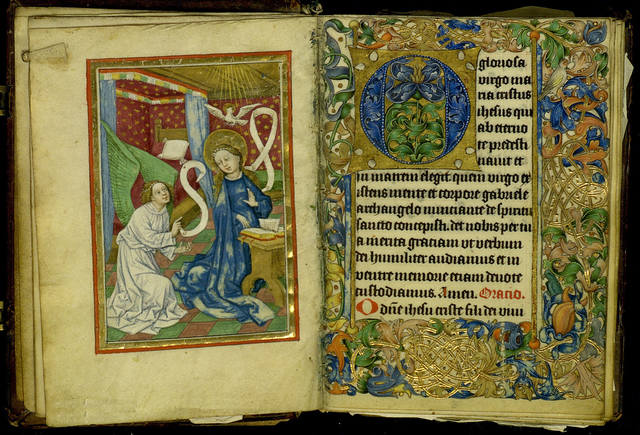 O gloriosa
virgo ma
ria cristus
ihesus qui
ab eterno
te predesti
nauit et
in matrem elegit quem virgo ex
istens mente et corpore gabriele
archangelo nunciante de spiritu
sancto concepisti det nobis per tu
a merita graciam vt verbum
dei humiliter audiamus et in
ventre memorie etiam deuote
custodiamus. Amen. Oratio.
O dñe ihesu criste fili dei viui